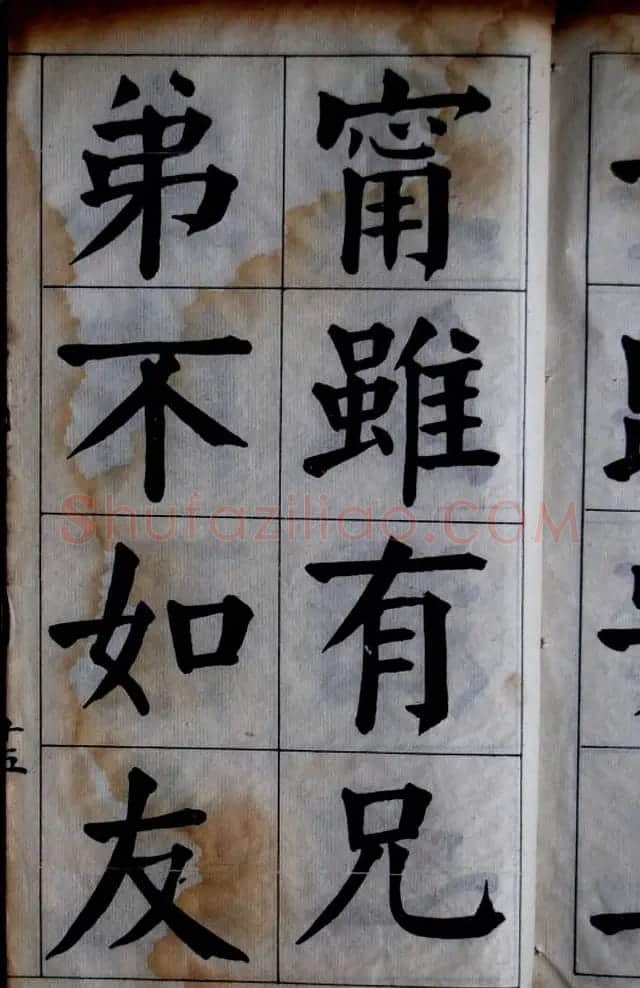 甯雖有兄
弟不如友
Shufaziliao.COM